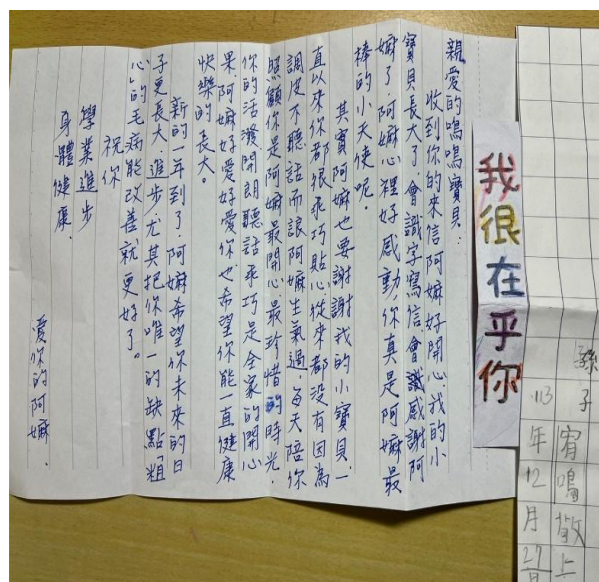 孫子
宥鳴敬上
113年12月27日
我很在乎你
親愛的鳴鳴寶貝：
收到你的來信阿嬤好開心我的小
寶貝長大了，會識字寫信會識感謝阿
嬤了，阿嬤心裡好感動，你真是阿嬤最
棒的小天使呢。
其實阿嬤也要謝謝我的小寶貝，一
直以來你都很乖巧貼心從來都沒有因為
調皮不聽話而讓阿嬤生氣過，每天陪你
照顧你是阿嬤最開心、最珍惜的時光，
你的活潑開朗聽話乖巧是全家的開心
果阿嬤好愛好愛你也希望你能一直健康
快樂的長大。
新的一年到了，阿嬤希望你未來的日
子更長大、進步尤其把你唯一的缺點「粗
心」的毛病能改善就更好了。
祝你
學業進步
身體健康.
愛你的阿嬤.